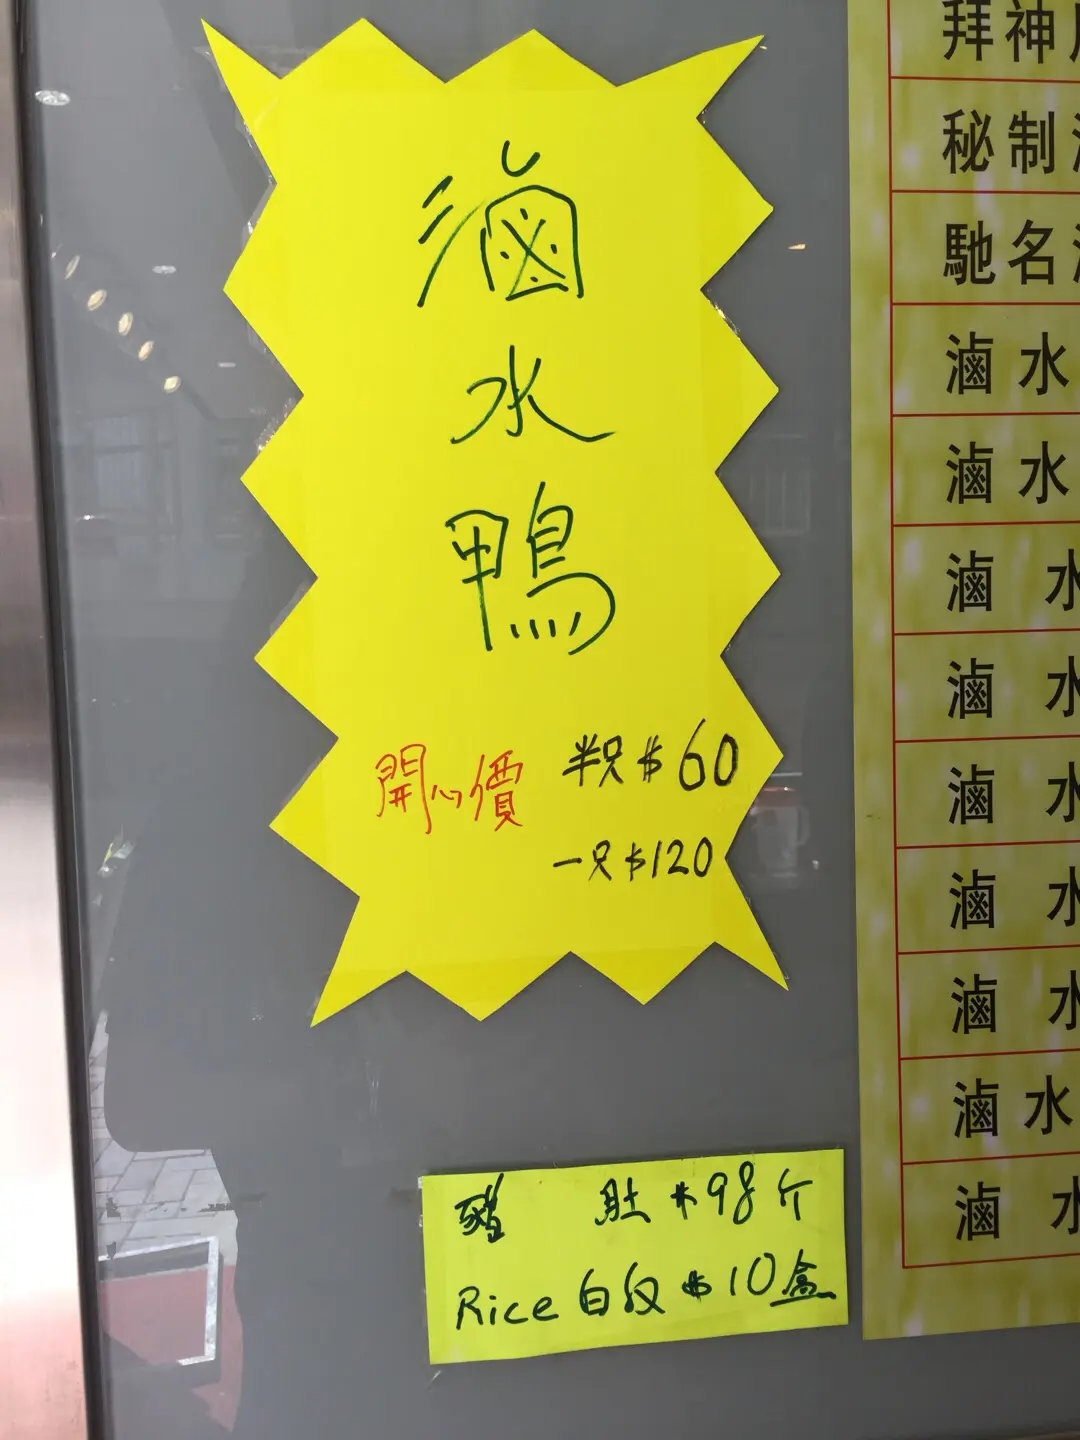 滷
水
鴨
開心價
半只 $60
一只 $120
豬 肚 $98 斤
Rice 白饭 $10 盒
拜神
秘制
馳名
滷水
滷水
滷水
滷水
滷水
滷水
滷水
滷水
滷水